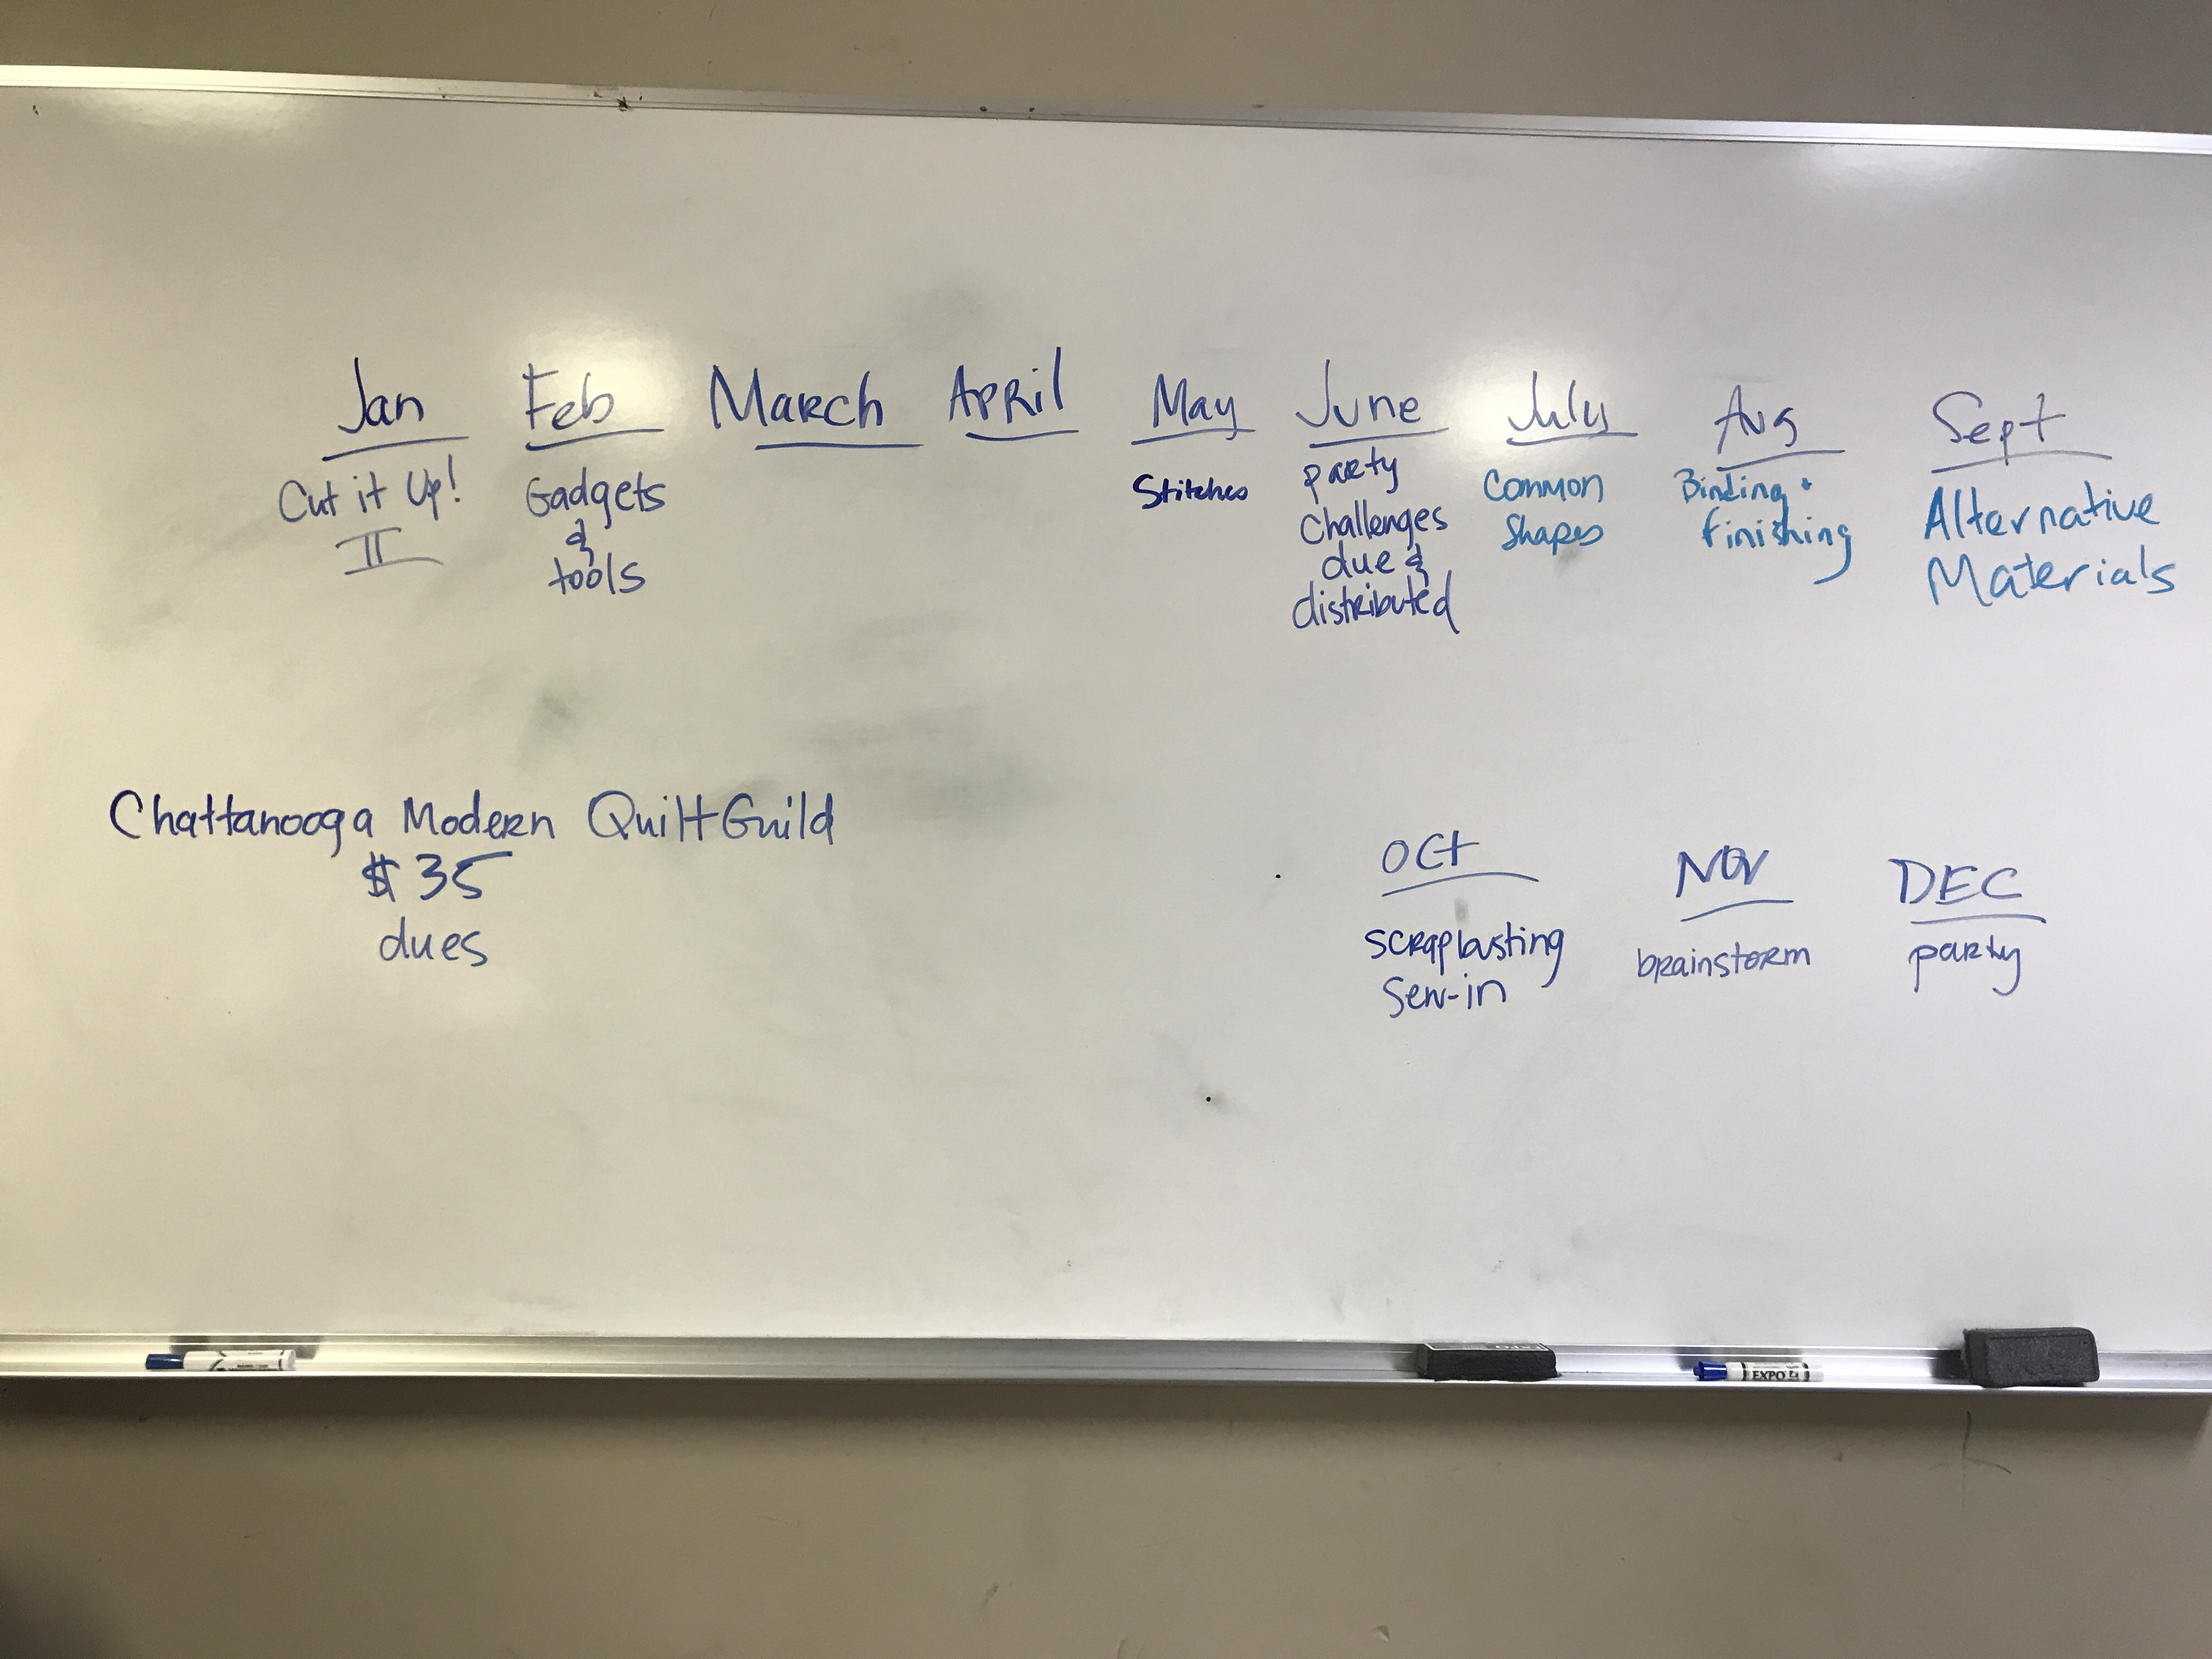 Jan Feb March April May June July Aug Sept
Cut it Up!
II
Gadgets
&
tools
Stitches
party
challenges
due &
distributed
Common
Shapes
Binding +
finishing
Alternative
Materials
Chattanooga Modern Quilt Guild
$35
dues
Oct Nov DEC
scrapbusting
Sew-in
brainstorm
party
EXPO